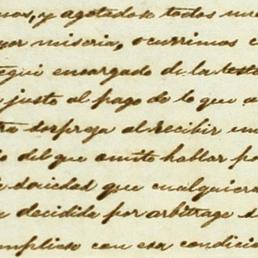 mos, y agotados todos nue
yor miseria, ocurrimos a
segui encargado de la testa
justo al pago de lo que a
sorpresa al recibir un
o del que omito hablar po
que cualquiera
decidida por arbitrage
mplieso con esa condicio